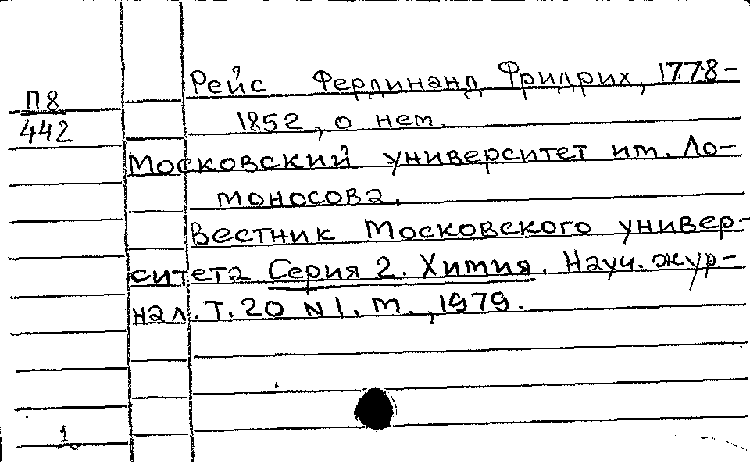 Рейс Фердинанд Фридрих, 1778-
П8
442
1852, о нем.
Московский университет им. Ло-
моносова.
Вестник Московского универ-
ситета Серия 2. Химия. Науч. жур-
нал. Т. 20 N 1. М., 1979.
1